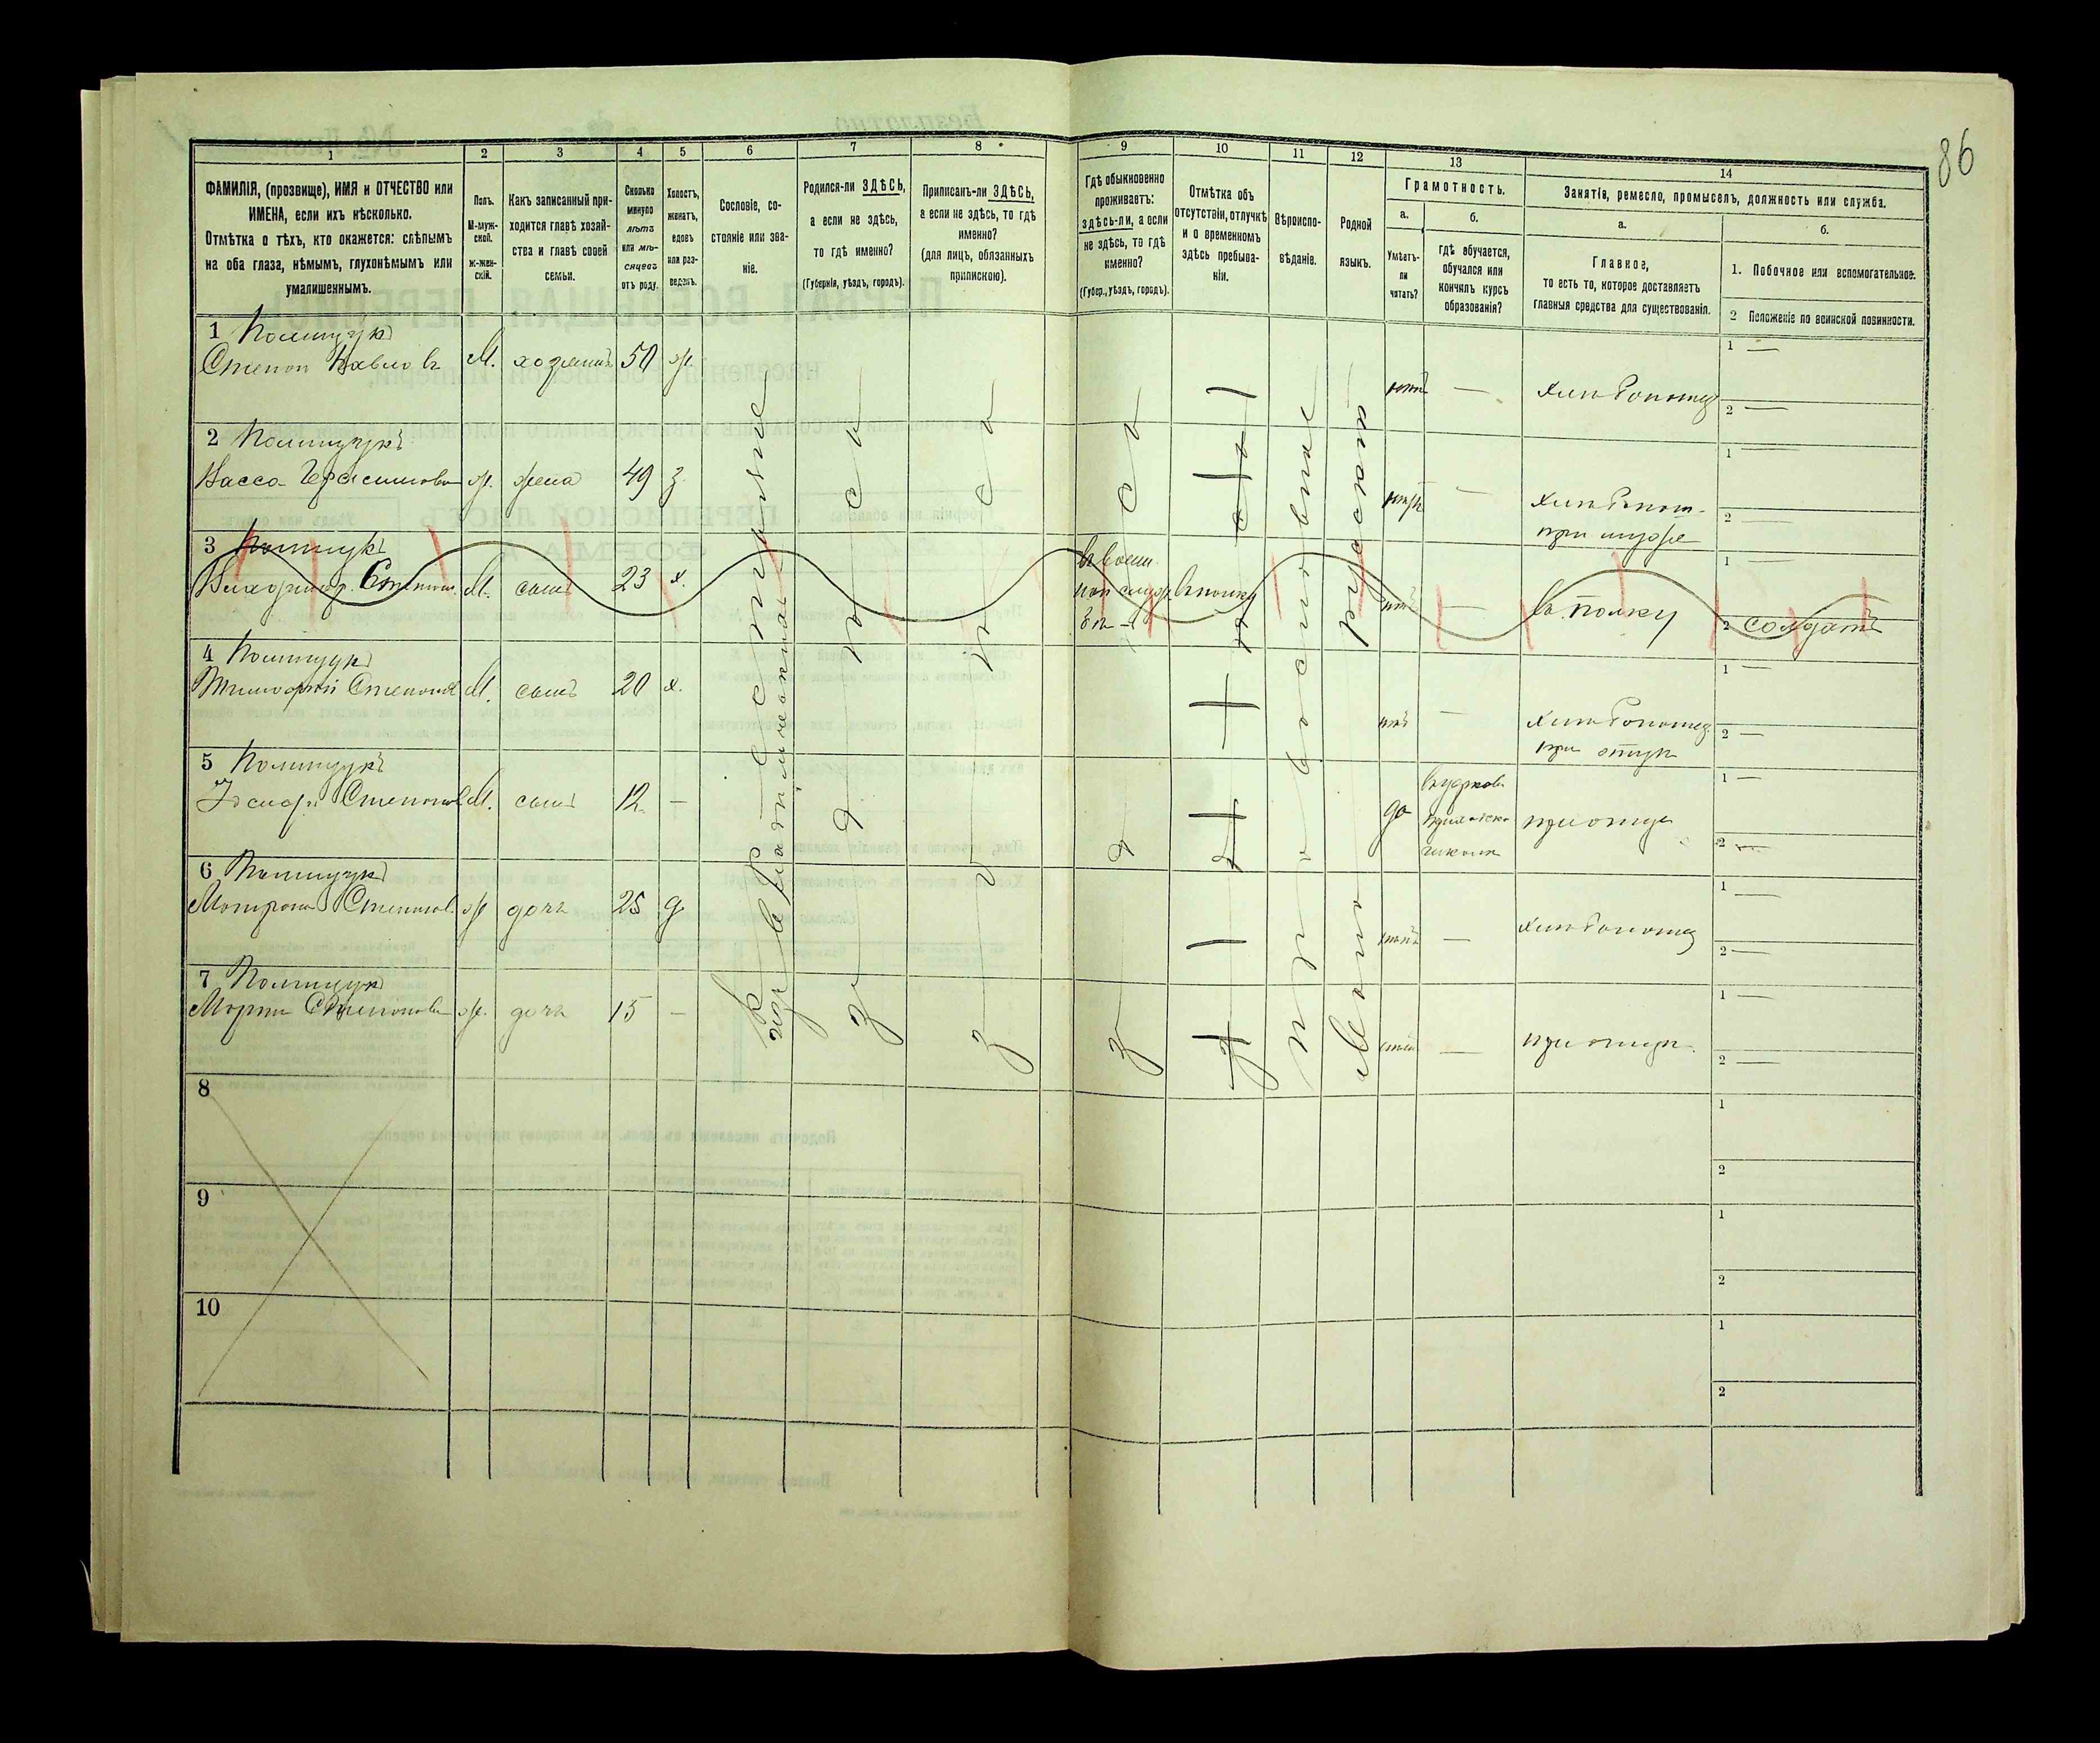 86
1 2 3 4 5 6 7 8 9 10 11 12 13 14
ФАМИЛІЯ, (прозвище), ИМЯ и ОТЧЕСТВО или
ИМЕНА, если ихъ нѣсколько.
Отмѣтка о тѣхъ, кто окажется: слѣпымъ
на оба глаза, нѣмымъ, глухонѣмымъ или
умалишеннымъ.
Полъ.
М-муж-
ской.
ж-жен-
скій.
Какъ записанный при-
ходится главѣ хозяй-
ства и главѣ своей
семьи.
Сколько
минуло
лѣтъ
или мѣ-
сяцевъ
отъ роду.
Холостъ,
женатъ,
вдовъ
или раз-
веденъ.
Сословіе, со-
стояніе или зва-
ніе.
Родился-ли ЗДѢСЬ,
а если не здѣсь,
то гдѣ именно?
(Губернія, уѣздъ, городъ).
Приписанъ-ли ЗДѢСЬ,
а если не здѣсь, то гдѣ
именно?
(для лицъ, обязанныхъ
припискою).
Гдѣ обыкновенно
проживаетъ:
здѣсь-ли, а если
не здѣсь, то гдѣ
именно?
(Губер., уѣздъ, городъ).
Отмѣтка объ
отсутствіи, отлучкѣ
и о временномъ
здѣсь пребыва-
ніи.
Вѣроиспо-
вѣданіе.
Родной
языкъ.
Грамотность.
а.
Умѣетъ-
ли
читать?
б.
гдѣ обучается,
обучался или
кончилъ курсъ
образованія?
Занятія, ремесло, промыселъ, должность или служба.
а.
Главное,
то есть то, которое доставляетъ
главныя средства для существованія.
б.
1. Побочное или вспомогательное.
2 Положеніе по воинской повинности.
1 Полищукъ
Степан Павлов М. хозяинъ 50 ж. нѣтъ — хлѣбопашец 1 —
2 —
2 Полищукъ
Васса Герасимова ж. жена 49 з. — хлѣбопаш. 1 —
при мужѣ 2 —
3 Полищукъ
Степан. М. сынъ 23 х. нѣтъ — въ полку 1 —
2 солдатъ
4 Полищукъ
Тимофей Степанов М. сынъ 20 х. нѣтъ — хлѣбопашец 1 —
при отцѣ 2 —
5 Полищукъ
Степанов М. сынъ 12 — да при отцѣ 1 —
2 —
6 Полищукъ
Матрона Степанов. ж. дочь 25 д нѣтъ — хлѣбопашец 1 —
2 —
7 Полищукъ
Марія Степанова ж. дочь 15 — — при отцѣ. 1 —
2 —
8 1
2
9 1
2
10 1
2
крестьяне
здѣсь
здѣсь
здѣсь
православные
Малорускій